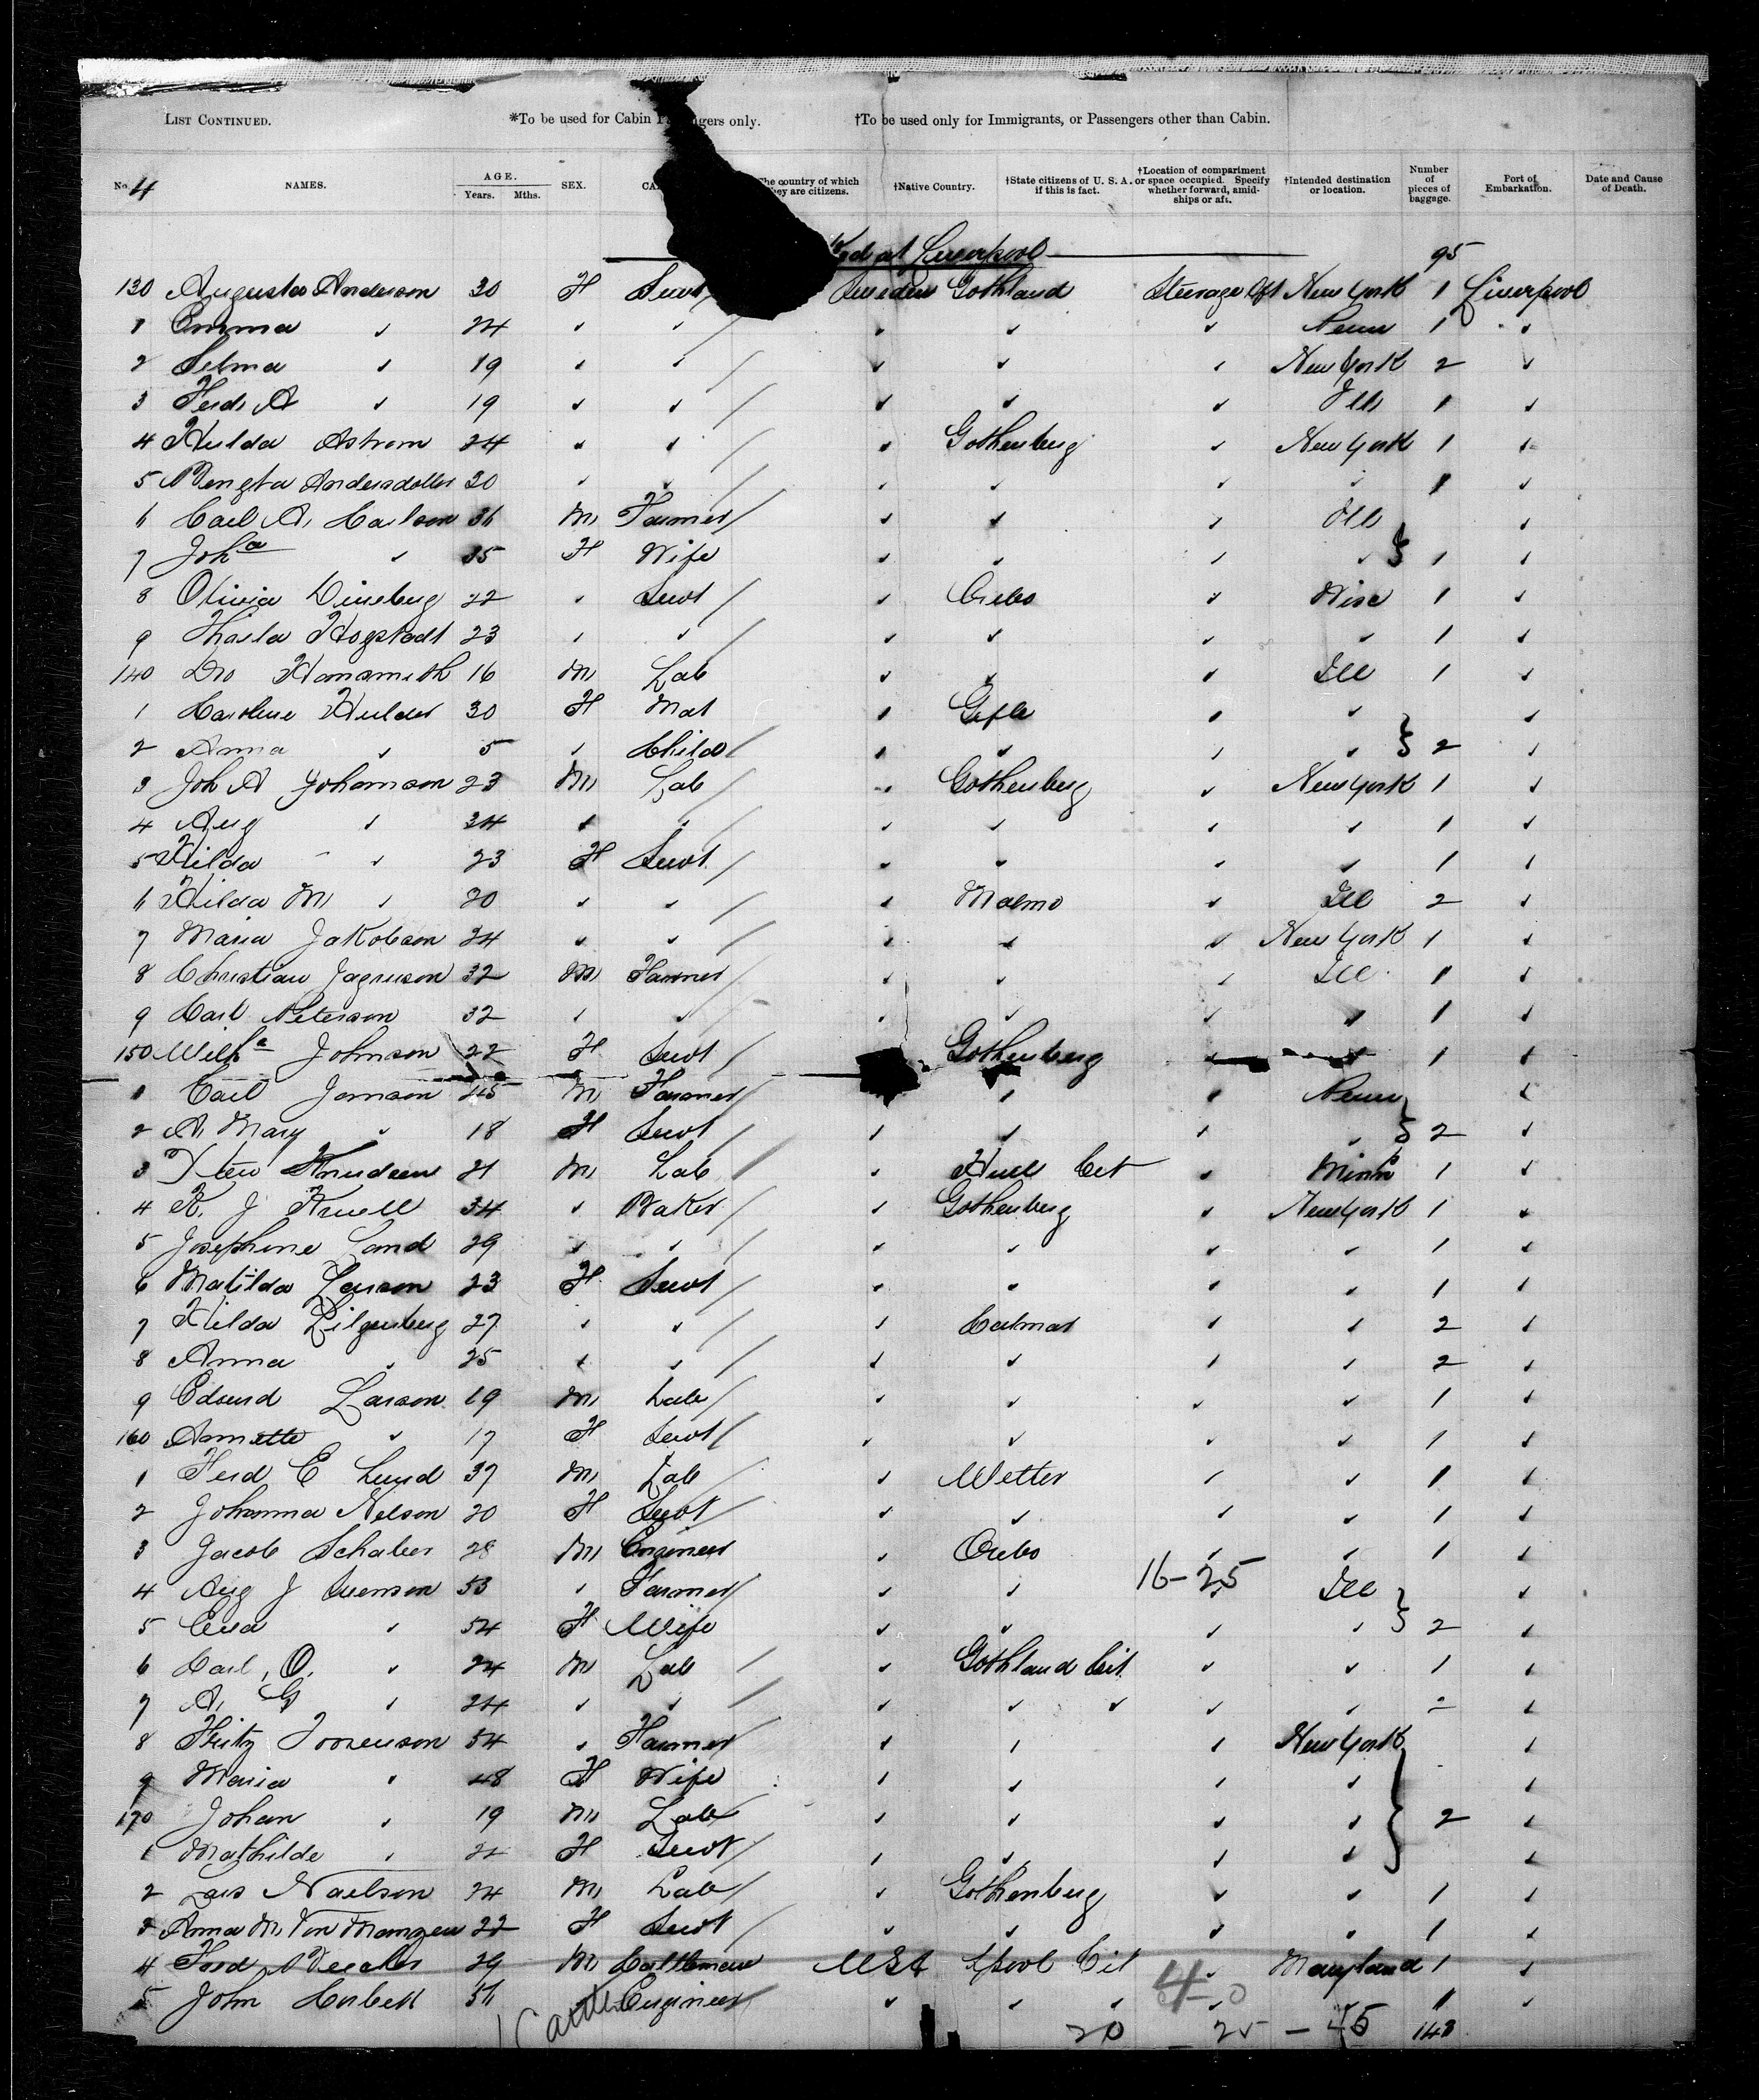 LIST CONTINUED. *To be used for Cabin Passengers only. †To be used only for Immigrants, or Passengers other than Cabin.
No. 4 NAMES. AGE. Years. Mths. SEX. The country of which they are citizens. †Native Country. †State citizens of U. S. A. if this is fact. †Location of compartment or space occupied. Specify whether forward, amidships or aft. †Intended destination or location. Number of pieces of baggage. Port of Embarkation. Date and Cause of Death.
at Liverpool 95
130 Augusta Anderson 30 F Servt Sweden Gothland Steerage Aft New York 1 Liverpool
1 Emma " 24 " " / " " " Penn 1 "
2 Selma " 19 " " / " " " New York 2 "
3 Ferd A " 19 " " / " " " Ills 1 "
4 Hulda Astrom 24 " " / " Gothenberg " New York 1 "
5 Bengta Andersdotter 30 " " / " " " " 1 "
6 Carl A. Carlson 36 M Farmer / " " " Ills "
7 Joha " 35 F Wife " " " " 1 "
8 Olivia 22 " Servt / " Orebo " Wisc 1 "
9 Hogstadt 23 " " / " " " " 1 "
140 Hansmith 16 M Lab " " " Ill 1 "
1 Caroline Hulder 30 F Mat " Gefle " " "
2 Anna " 5 " Child / " " " " 2 "
3 Joh A Johanson 23 M Lab / " Gothenberg " New York 1 "
4 Aug " 34 " " / " " " " 1 "
5 Hilda " 23 F Servt / " " " " 1 "
6 Hilda M " 20 " " / " Malmo " Ill 2 "
7 Maria Jakobson 24 " " / " " " New York 1 "
8 Christian 32 M Farmer / " " " Ill 1 "
9 Carl Peterson 32 " " / " " " " 1 "
150 Wilha Johnson 22 F Servt / Gothenberg " " 1 "
1 Carl Jonson 45 M Farmer / " " Penn "
2 A. Mary " 18 F Servt / " " " " 2 "
3 Knudsen 21 M Lab / " Hull Cit " Minn 1 "
4 K. J Kruell 34 " Baker / " Gothenberg " New York 1 "
5 Josephine Land 29 " " / " " " " 1 "
6 Matilda Larson 23 F Servt / " " " " 1 "
7 Hilda Liljenberg 27 " " / " Calmar " " 2 "
8 Anna " 25 " " / " " " " 2 "
9 Edourd Larson 19 M Lab / " " " " 1 "
160 Annette " 17 F Servt / " " " " 1 "
1 Ferd E Lund 37 M Lab / " Wetter " " 1 "
2 Johanna Nelson 20 F Servt / " " " " 1 "
3 Jacob Schaber 28 M Engineer " Orebo " " 1 "
16-25
4 Aug J Swenson 53 " Farmer / " " " Ill "
5 Eva " 54 F Wife " " " " 2 "
6 Carl, O. " 24 M Lab / " Gothland Cit " " 1 "
7 A. G " 24 " " / " " " " " - "
8 Fritz 54 " Farmer / " " " New York "
9 Maria " 48 F Wife " " " " "
170 Johan " 19 M Lab / " " " " 2 "
1 Mathilde " 22 F Servt / " " " " "
2 Lars Naelson 24 M Lab / " Gothenberg " " 1 "
3 Anna M. Von Manzen 22 F Servt / " " " " 1 "
4 29 M Cattleman USA Lpool Cit " Maryland 1 "
5 John Corbett 51 " Engineer / " " " " 1 "
Cattle 4-0
20 25 - 45 148